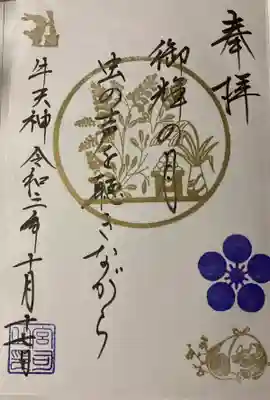 奉拝
御輝の月
虫の声を聴きながら
牛天神 令和二年十月十七日
宮司